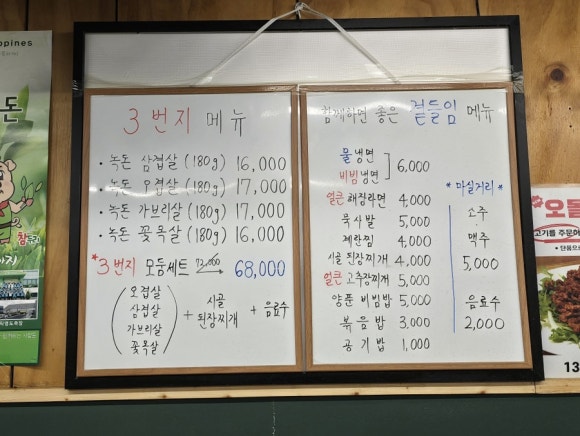 3번지 메뉴
• 녹돈 삼겹살 (180g) 16,000
• 녹돈 오겹살 (180g) 17,000
• 녹돈 가브리살 (180g) 17,000
• 녹돈 꽃목살 (180g) 16,000
*3번지 모둠세트 68,000
(오겹살
삼겹살
가브리살
꽃목살)
+ 시골
된장찌개
+ 음료수
함께하면 좋은 곁들임 메뉴
물냉면
비빔냉면
] 6,000
얼큰 해장라면 4,000
묵사발 5,000
계란찜 4,000
시골 된장찌개 4,000
얼큰 고추장찌개 5,000
양푼 비빔밥 5,000
볶음밥 3,000
공기밥 1,000
* 마실거리 *
소주
맥주
5,000
음료수
2,000
돈
참
오돌
고기를 주문하
13